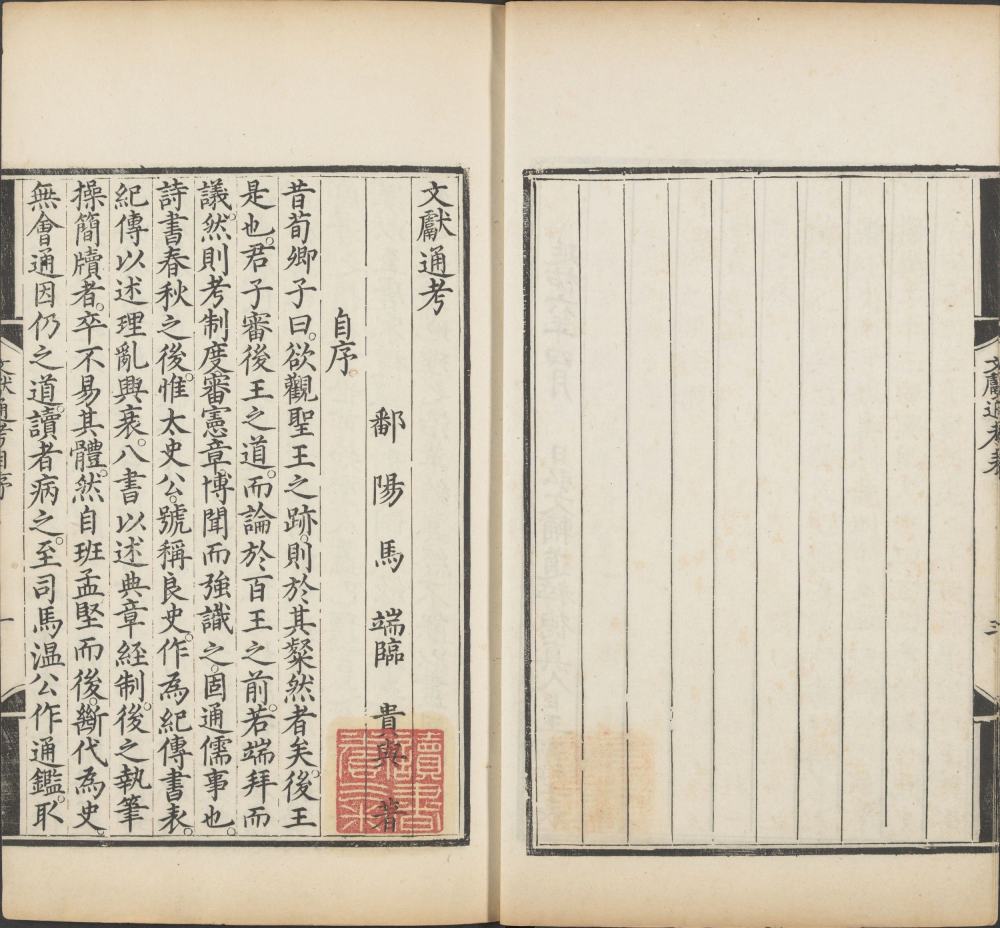 文獻通考
鄱陽馬端臨 貴與 著
自序
昔荀卿子曰。欲觀聖王之跡。則於其粲然者矣。後王
是也。君子審後王之道。而論於百王之前。若端拜而
議。然則考制度。審憲章。博聞而強識之。固通儒事也。
詩書春秋之後。惟太史公。號稱良史。作為紀傳書表。
紀傳以述理亂興衰。八書以述典章經制。後之執筆
操簡牘者。卒不易其體。然自班孟堅而後。斷代為史。
無會通因仍之道。讀者病之。至司馬温公作通鑑。取
文獻通考自序
一